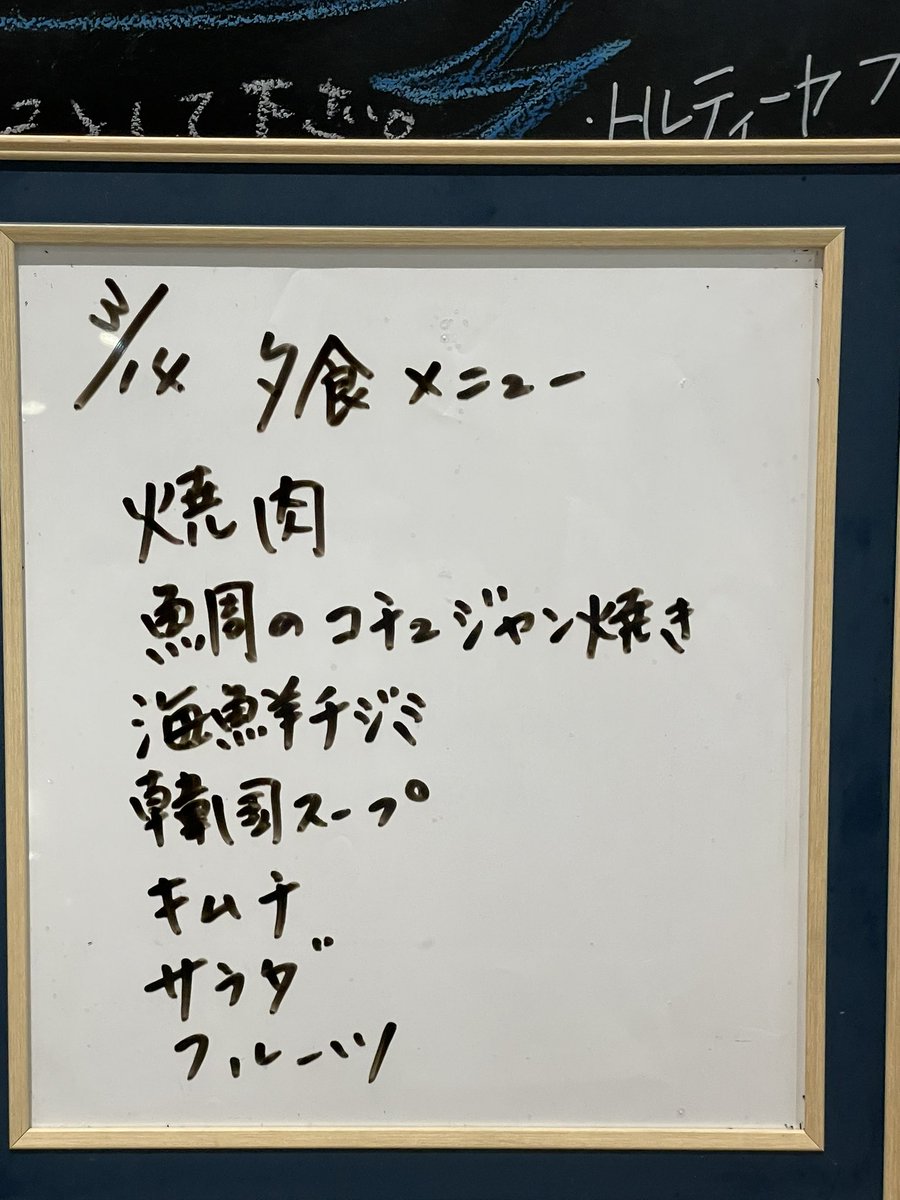 として下さい。
・トルティーヤ
3/14 夕食メニュー
焼肉
鯛のコチュジャン焼き
海鮮チヂミ
韓国スープ
キムチ
サラダ
フルーツ